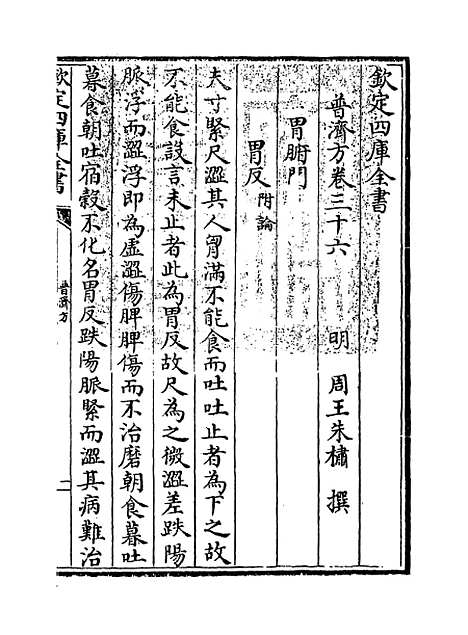 欽定四庫全書
普濟方卷三十六 明 周王朱橚 撰
胃腑門
胃反附論
夫寸緊尺澀其人胷滿不能食而吐吐止者為下之故
不能食設言未止者此為胃反故尺為之微澀差趺陽
脈浮而澀浮即為虛澀傷脾脾傷而不治磨朝食暮吐
暮食朝吐宿穀不化名胃反趺陽脈緊而澀其病難治
欽定四庫全書
普濟方
二